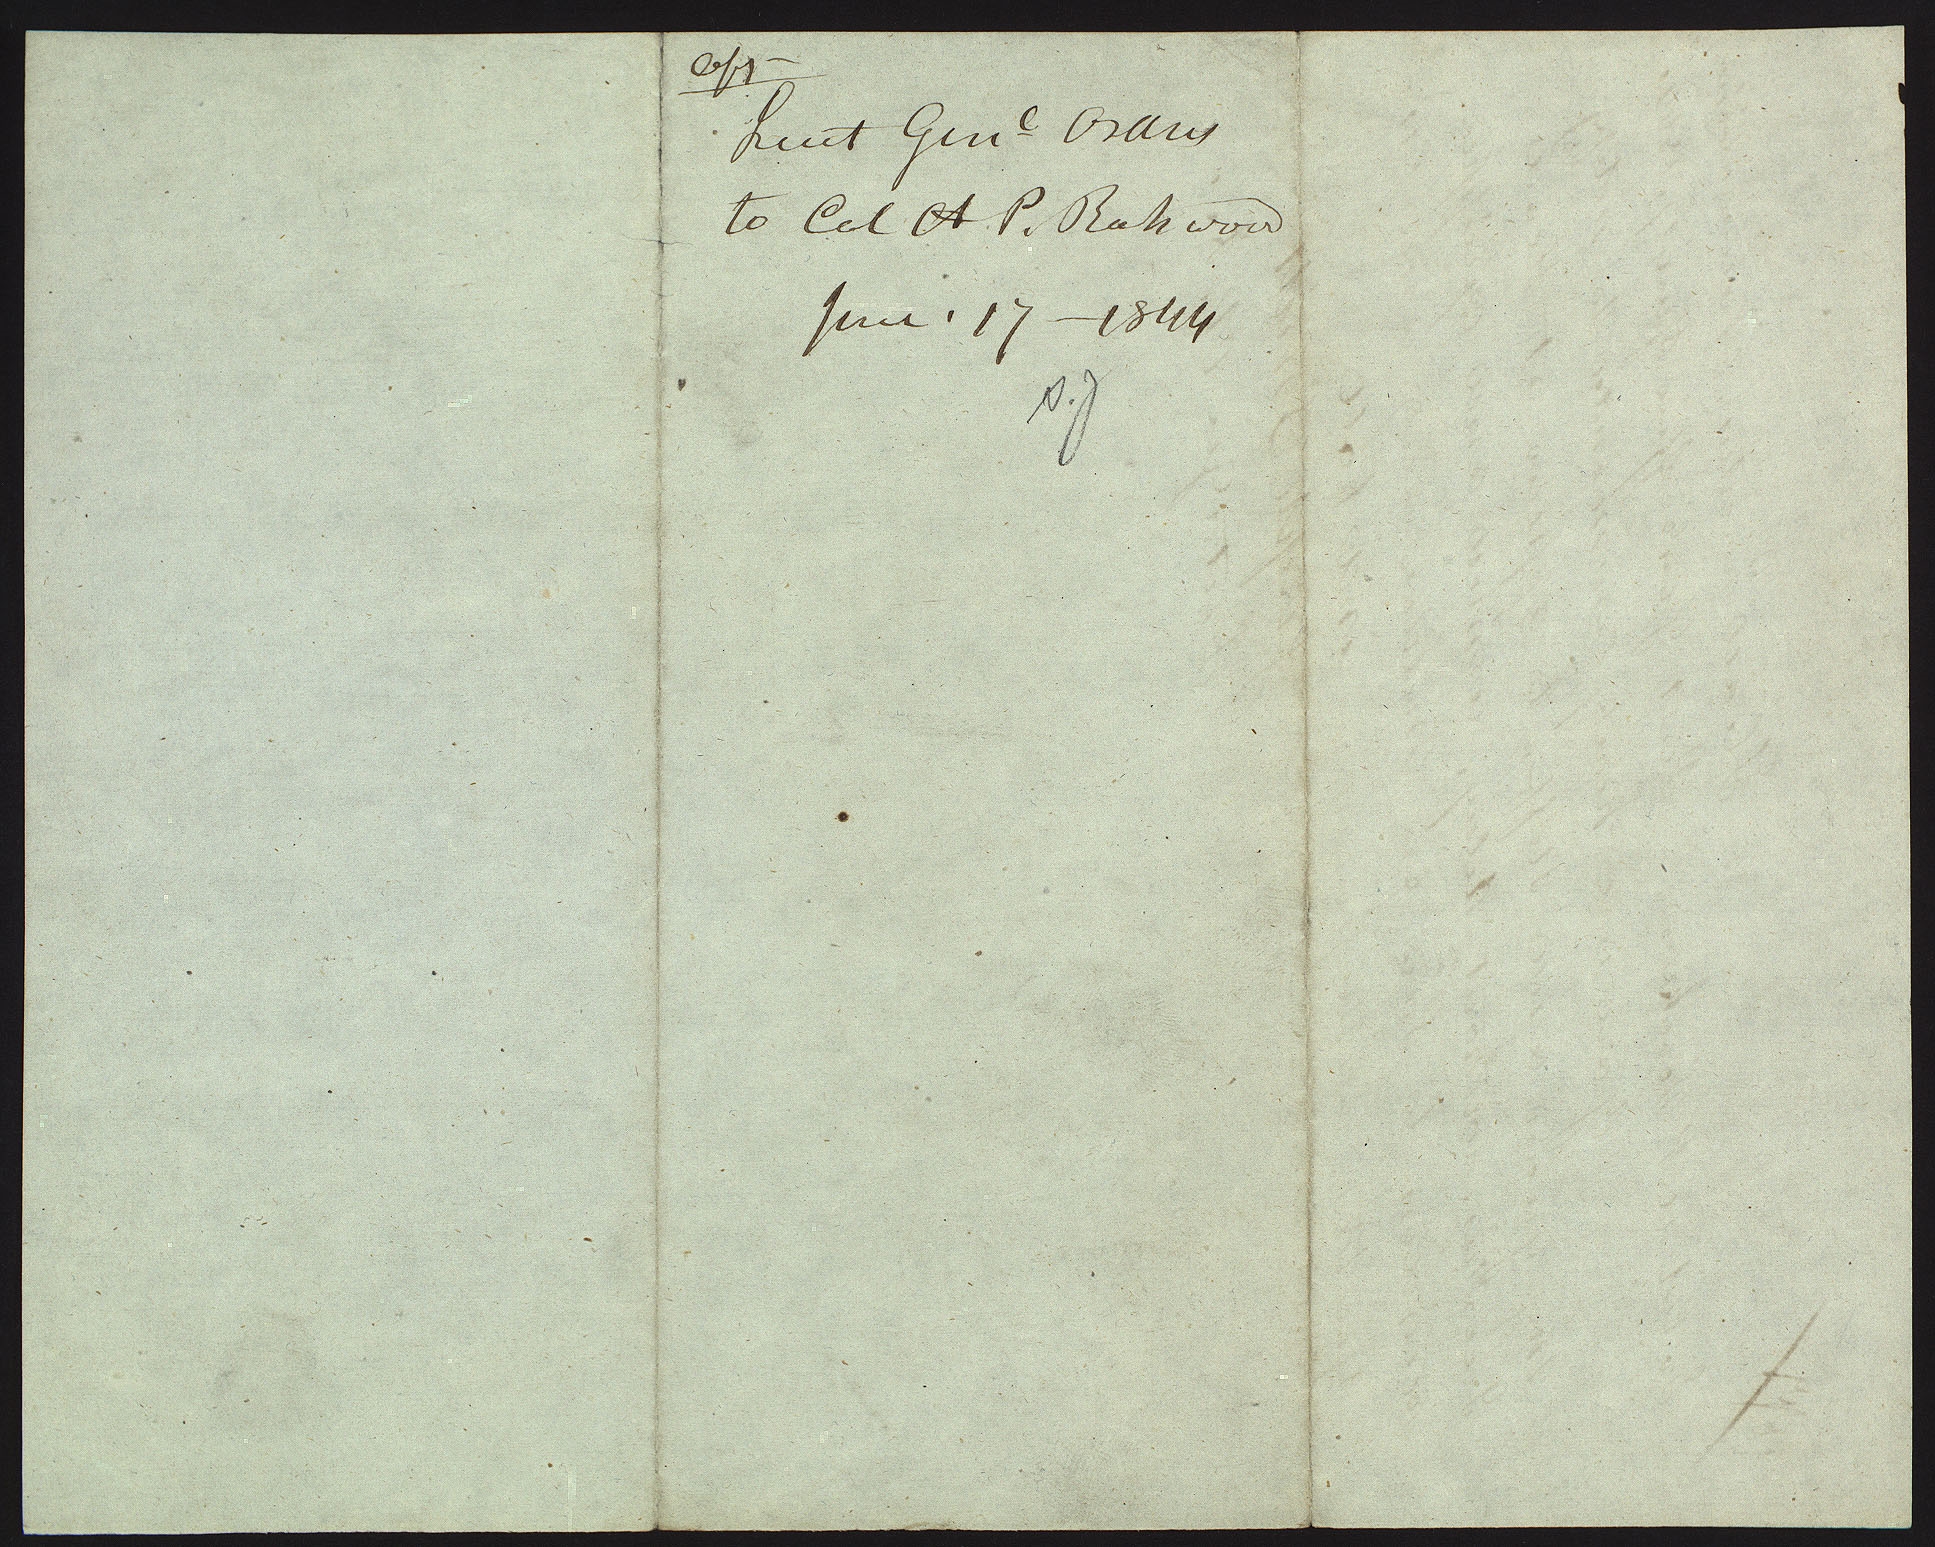 copy
Lieut Genl Orders
to Col A P. Rockwood
June 17 – 1844